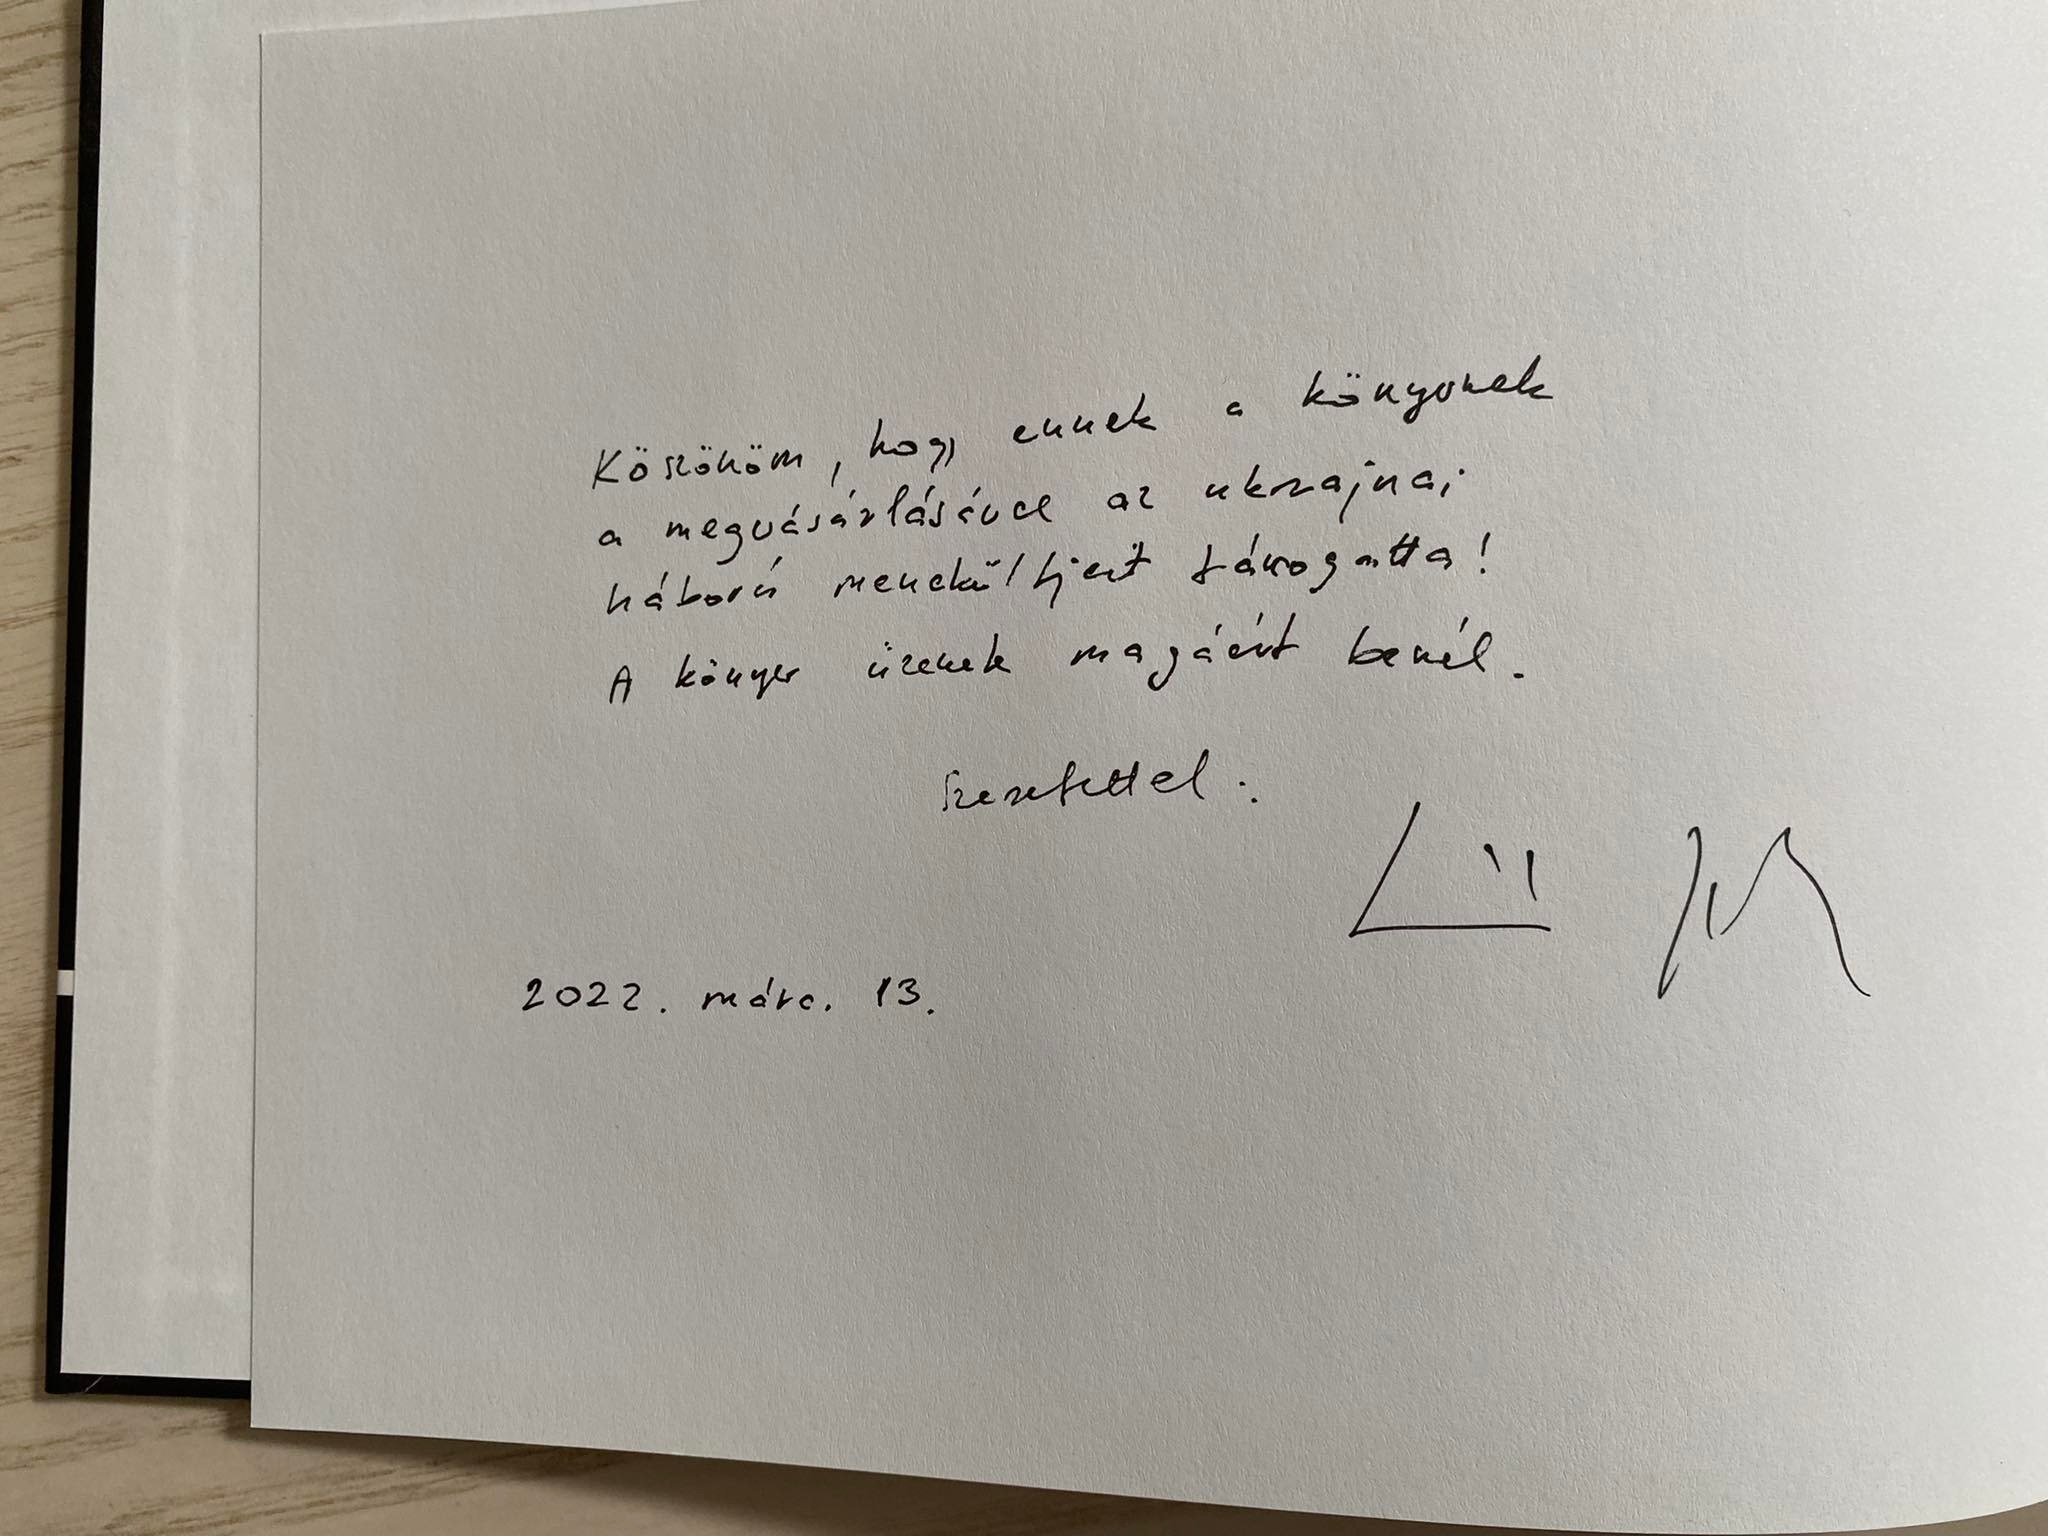 Köszönöm, hogy ennek a könyvnek
a megvásárlásával az ukrajnai
háború menekültjeit támogatta!
A könyv üzenete magáért beszél.
Szeretettel:
2022. márc. 13.